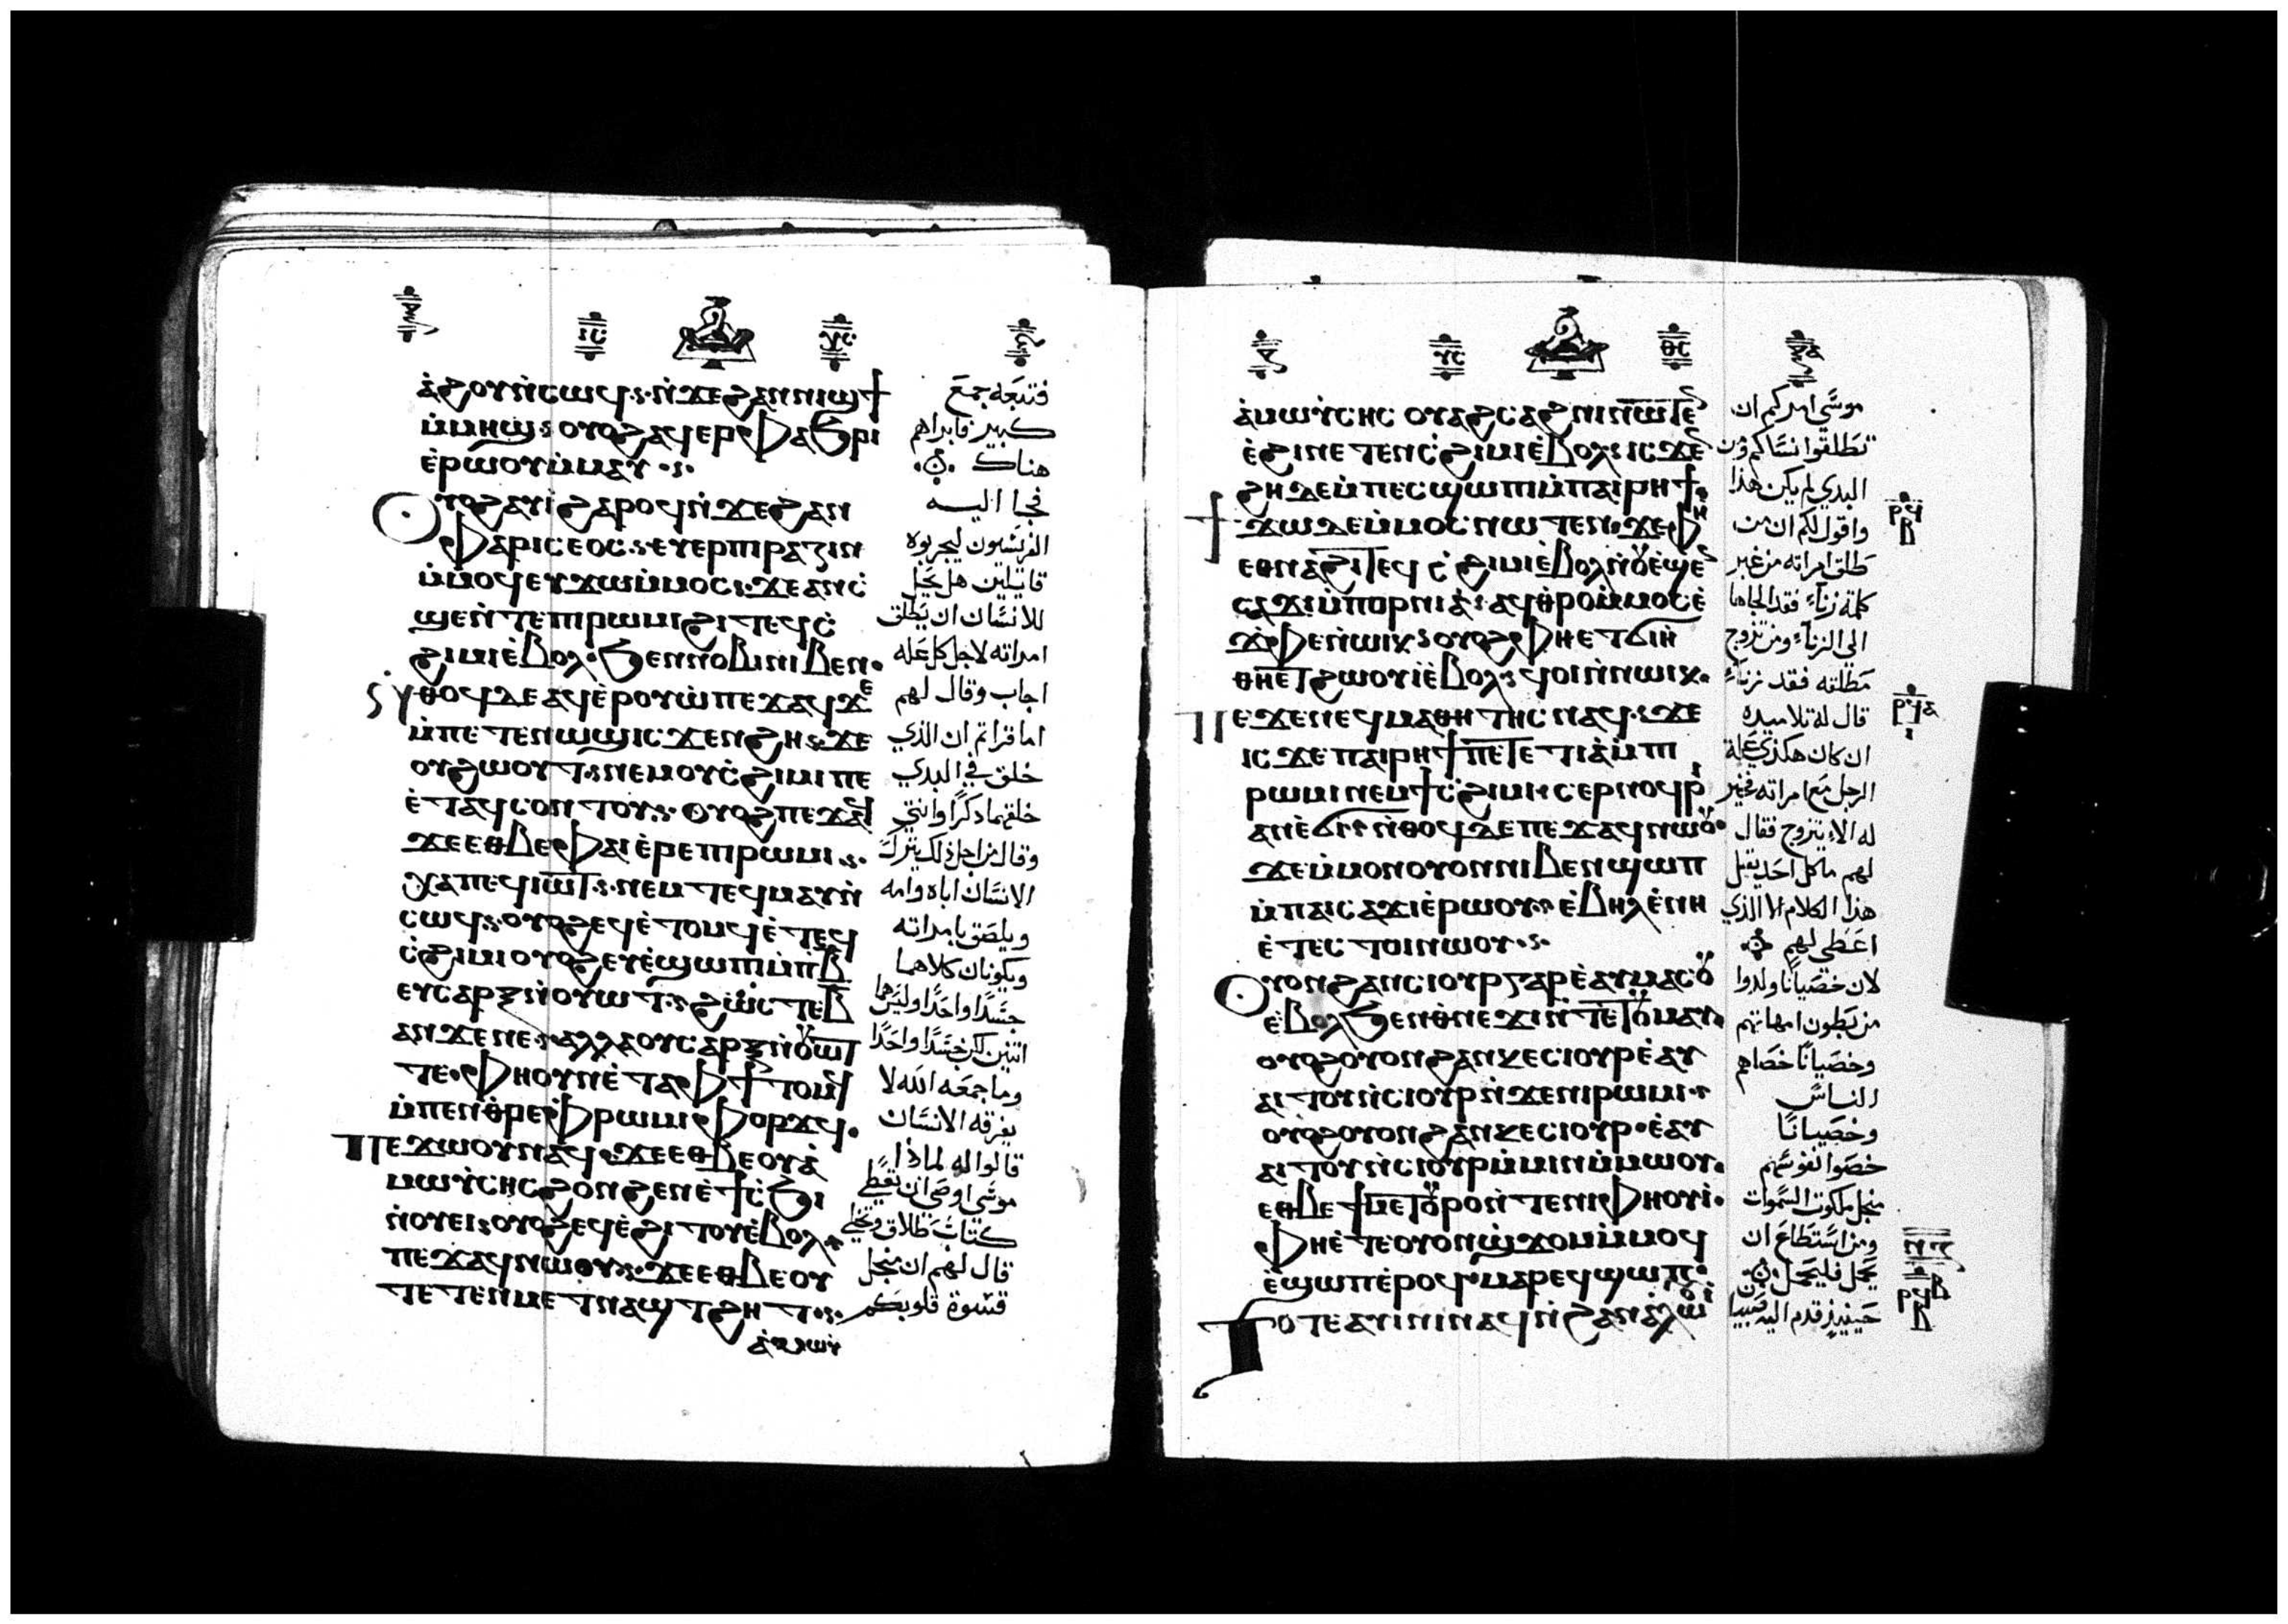 ⲁϩⲟⲩⲛ̀ⲥⲱϥ ⲛ̀ϫⲉϩⲁⲛⲛⲓϣϯ
ⲙ̀ⲙⲏϣ ⲟⲩⲟϩⲁϥⲉⲣⲫⲁϧⲣⲓ
ⲉ̀ⲣⲱⲟⲩⲙ̀ⲙⲁⲩ
ⲟⲩⲟϩⲁⲩⲓ̀ϩⲁⲣⲟϥⲛ̀ϫⲉϩⲁⲛ
ⲫⲁⲣⲓⲥⲉⲟⲥ ⲉⲩⲉⲣⲡⲓⲣⲁⲍⲓⲛ
ⲙ̀ⲙⲟϥⲉⲩϫⲱⲙ̀ⲙⲟⲥ ϫⲉⲁⲛⲥ̀
ϣⲉⲛ̀ⲧⲉⲡⲓⲣⲱⲙⲓϩⲓⲧⲉϥⲥ̀
ϩⲓⲙⲓⲉ̀ⲃⲟⲗ ϧⲉⲛⲛⲟⲃⲓⲛⲓⲃⲉⲛ
ⲛ̀ⲑⲟϥⲇⲉⲁϥⲉ̀ⲣⲟⲩⲱ̀ⲡⲉϫⲁϥϫⲉ
ⲙ̀ⲡⲉⲧⲉⲛⲱϣⲓⲥϫⲉⲛϩⲏ ϫⲉ
ⲟⲩϩⲱⲟⲩⲧ ⲛⲉⲙⲟⲩⲥ̀ϩⲓⲙⲓⲡⲉ
ⲉ̀ⲧⲁϥⲥⲟⲛⲧⲟⲩ ⲟⲩⲟϩⲡⲉϫⲁϥ
ϫⲉⲉⲑⲃⲉⲫⲁⲓⲉ̀ⲣⲉⲡⲓⲣⲱⲙⲓ
ⲭⲁⲡⲉϥⲓⲱⲧ ⲛⲉⲙⲧⲉϥⲙⲁⲩⲛ̀
ⲥⲱϥ ⲟⲩⲟϩⲉϥⲉ̀ⲧⲟⲙϥⲉ̀ⲧⲉϥ
ⲥ̀ϩⲓⲙⲓⲟⲩⲟϩⲉⲩⲉ̀ϣⲱⲡⲓⲙ̀ⲡⲃ̅
ⲉⲩⲥⲁⲣⲝⲛ̀ⲟⲩⲱⲧ ϩⲱⲥⲧⲉⲃ̅
ⲁⲛϫⲉⲛⲉ ⲁⲗⲗⲁⲟⲩⲥⲁⲣⲝⲛ̀ⲟⲩⲱⲧ
ⲧⲉ ⲫⲏⲟⲩⲛⲉ̀ⲧⲁⲫϯⲧⲟⲙϥ
ⲙ̀ⲡⲉⲛⲑ̀ⲣⲉⲫ̀ⲣⲱⲙⲓⲫⲟⲣϫϥ
ⲡⲉϫⲱⲟⲩⲛⲁϥ ϫⲉⲉⲑⲃⲉⲟⲩⲁ̀
ⲙⲱⲩ̀ⲥⲏⲥϩⲟⲛϩⲉⲛⲉ̀ϯⲥ̀ϧⲓ
ⲛ̀ⲟⲩⲉⲓ ⲟⲩⲟϩⲉϥⲉ̀ϩⲓⲧⲟⲩⲉ̀ⲃⲟⲗ
ⲡⲉϫⲁϥⲛⲱⲟⲩ ϫⲉⲉⲑⲃⲉⲟⲩ
ⲧⲉⲧⲉⲛⲙⲉⲧⲛⲁϣⲧϩⲏⲧ
ⲁ̀ⲙⲱⲩ̀
فتبعه جمع
كبير فابراهم
هناك
فجا اليه
الفريسيون ليجربوه
قايلين هل يحل
للانسان ان يطلق
امراته لاجل كل عله
اجاب وقال لهم
اما قراتم ان الذي
خلق في البدي
خلقهما ذكرًا وانثي
وقال من اجل ذلك يترك
الانسان اباه وامه
ويلصق بامراته
ويكونان كلاهما
جسدًا واحدًا وليس هما
اثنين لكن جسدًا واحدًا
وما جمعه الله لا
يفرقه الانسان
قالوا له لماذا
موسي اوصي ان يعطي
كتاب طلاق ويخلي
قال لهم ان منجل
قسوة قلوبكم
ⲁ̀ⲙⲱⲩ̀ⲥⲏⲥ ⲟⲩⲁϩⲥⲁϩⲛⲓⲛⲱⲧⲉⲛ
ⲉ̀ϩⲓⲛⲉⲧⲉⲛⲥ̀ϩⲓⲙⲓⲉ̀ⲃⲟⲗ ⲓⲥϫⲉⲛ
ϩⲏⲇⲉⲙ̀ⲡⲉⲥϣⲱⲡⲓⲙ̀ⲡⲁⲓⲣⲏϯ
ϯϫⲱⲇⲉⲙ̀ⲙⲟⲥⲛⲱⲧⲉⲛ ϫⲉⲫⲏ
ⲉⲑⲛⲁϩⲓⲧⲉϥⲥ̀ϩⲓⲙⲓⲉ̀ⲃⲟⲗⲛ̀ⲟⲩⲉ̀ϣⲉⲛ
ⲥⲁϫⲓⲙ̀ⲡⲟⲣⲛⲓⲁ̀ ⲁϥⲑ̀ⲣⲟⲙ̀ⲙⲟⲥⲉ̀
ϫⲫⲉⲛ̀ⲱⲓⲕ ⲟⲩⲟϩⲫⲏⲉⲧϭⲓⲛ̀
ⲑⲏⲉⲧϩⲱⲟⲩⲓ̀ⲉ̀ⲃⲟⲗ ϥⲟⲓⲛ̀ⲛⲱⲓⲕ
ⲡⲉϫⲉⲛⲉϥⲙⲁⲑⲏⲧⲏⲥⲛⲁϥ ϫⲉ
ⲓⲥϫⲉⲡⲁⲓⲣⲏϯⲡⲉⲧⲉⲧⲓⲁ̀ⲙ̀ⲡⲓ
ⲣⲱⲙⲓⲛⲉⲙϯⲥ̀ϩⲓⲙⲓⲥⲉⲣⲛⲟϥⲣⲓ
ⲁⲛⲉ̀ϭⲓ ⲛ̀ⲑⲟϥⲇⲉⲡⲉϫⲁϥⲛⲱⲟⲩ
ϫⲉⲙ̀ⲙⲟⲛⲟⲩⲟⲛⲛⲓⲃⲉⲛϣⲱⲡ
ⲙ̀ⲡⲁⲓⲥⲁϫⲓⲉ̀ⲣⲱⲟⲩ ⲉ̀ⲃⲏⲗⲉ̀ⲛⲏ
ⲉ̀ⲧⲉⲥⲧⲟⲓⲛⲱⲟⲩ
ⲟⲩⲟⲛϩⲁⲛⲥⲓⲟⲩⲣⲅⲁⲣⲉ̀ⲁⲩⲙⲁⲥⲟⲩ
ⲉ̀ⲃⲟⲗϧⲉⲛⲑ̀ⲛⲉϫⲓⲛ̀ⲧⲉⲧⲟⲩⲙⲁⲩ
ⲟⲩⲟϩⲟⲩⲟⲛϩⲁⲛⲕⲉⲥⲓⲟⲩⲣⲉ̀ⲁⲩ
ⲁⲓⲧⲟⲩⲛ̀ⲥⲓⲟⲩⲣⲛ̀ϫⲉⲛⲓⲣⲱⲙⲓ
ⲟⲩⲟϩⲟⲩⲟⲛϩⲁⲛⲕⲉⲥⲓⲟⲩⲣ ⲉ̀ⲁⲩ
ⲁⲓⲧⲟⲩⲛ̀ⲥⲓⲟⲩⲣⲙ̀ⲙⲓⲛⲙ̀ⲙⲱⲟⲩ
ⲉⲑⲃⲉϯⲙⲉⲧⲟⲩⲣⲟⲛ̀ⲧⲉⲛⲓⲫⲏⲟⲩⲓ̀
ⲫⲏⲉ̀ⲧⲉⲟⲩⲟⲛϣ̀ϫⲟⲙⲙ̀ⲙⲟϥ
ⲉ̀ϣⲱⲡⲉ̀ⲣⲟϥ ⲙⲁⲣⲉϥϣⲱⲡ
ⲧⲟⲧⲉⲁⲩⲓⲛⲓⲛⲁϥⲛ̀ϩⲁⲛⲁ̀ⲗⲱⲟⲩⲓ̀
موسي امركم ان
تطلقوا نساكم ومن
البدي لم يكن هذا
واقول لكم ان من
طلق امراته من غير
كلمة زناء فقد الجاها
الي الزناء ومن تزوج
مطلقه فقد زناء
قال له تلاميذه
ان كان هكذي علة
الرجل مع امراته فخير
له الا يتزوج فقال
لهم ما كل احد يقبل
هذا الكلام الا الذي
اعطي لهم
لان خصيانًا ولدوا
من بطون امهاتهم
وخصيانًا خصاهم
الناس
وخصيانًا
خصوا نفوسهم
منجل ملكوت السموات
ومن استطاع ان
يحمل فليحمل
حينيذٍ قدم اليه صبيان